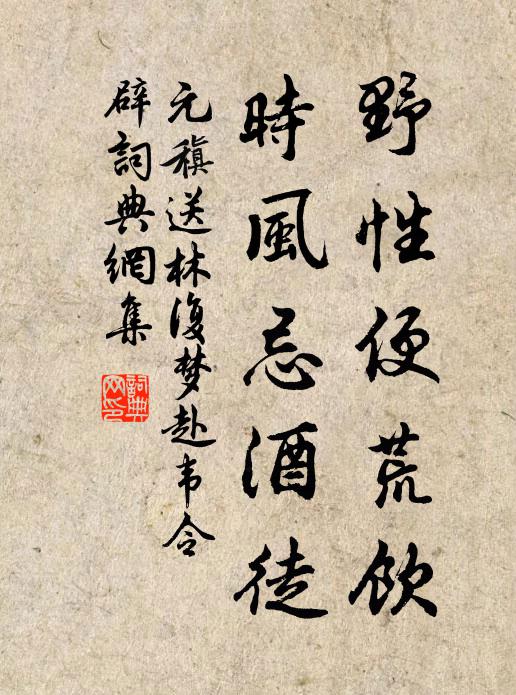 野性便荒飲
時風忌酒徒
元稹送林復梦赴韦令
辟詞典網集
詞典网印